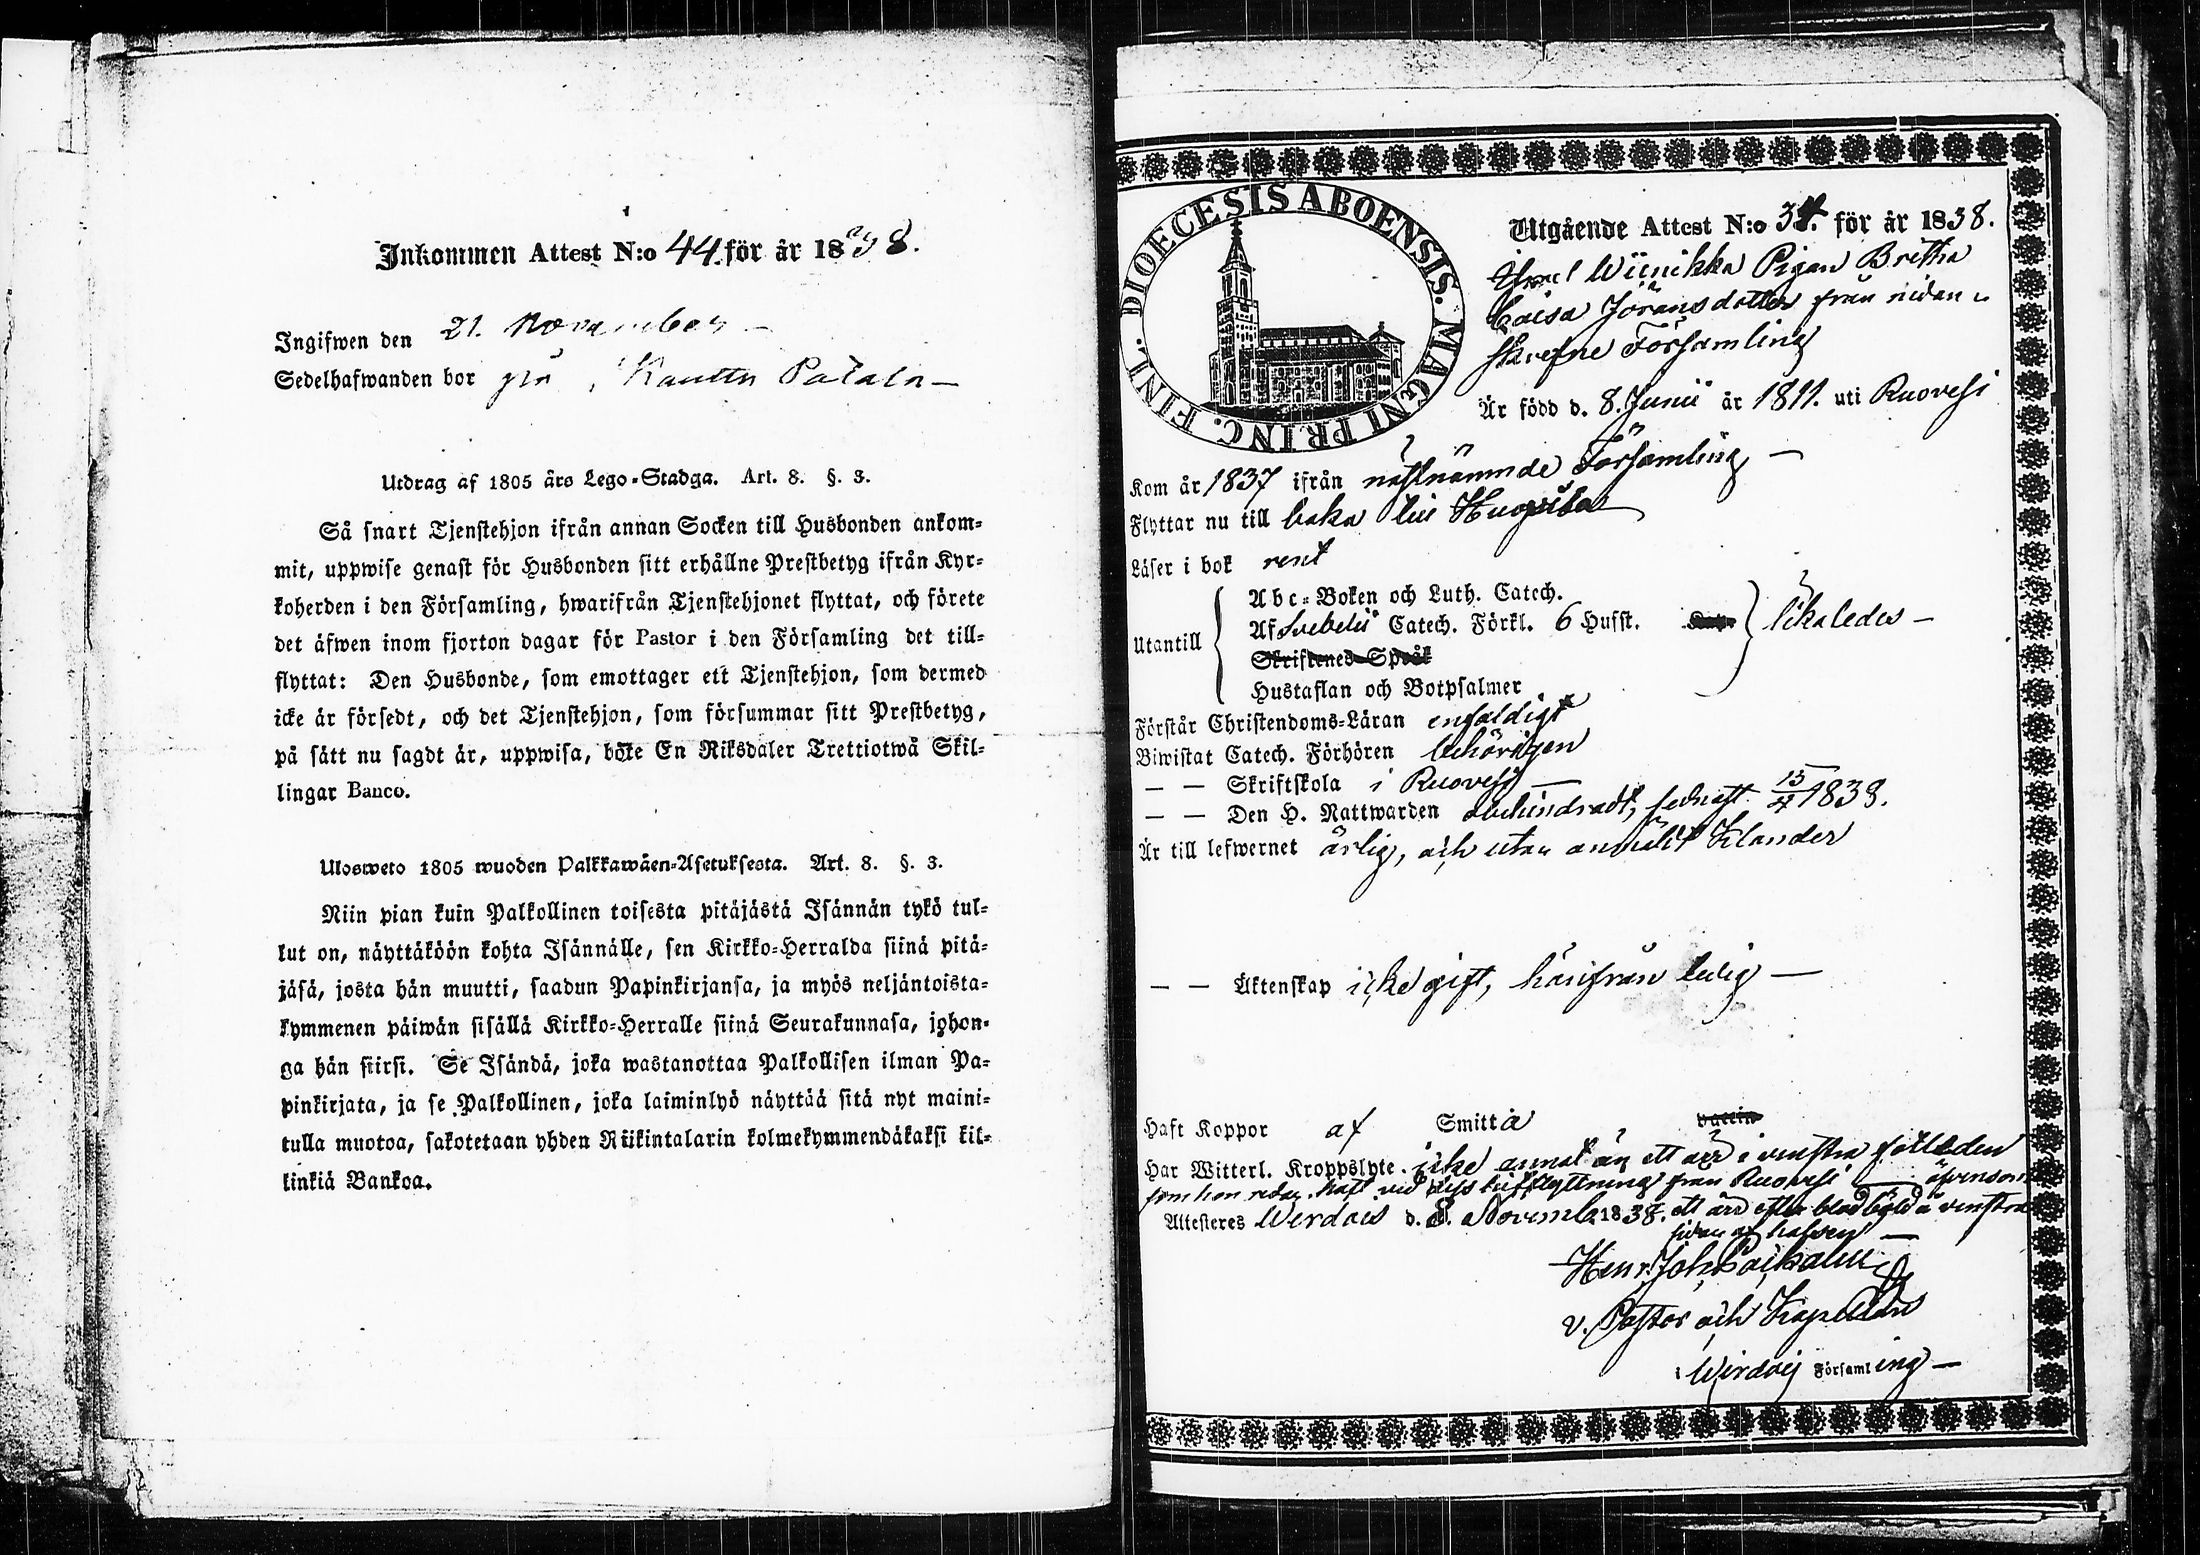 Inkommen Attest N:o 44. för år 1838.
Ingifwen den 21. November –
Sedelhafwanden bor på Kauttu Patala –
Utdrag af 1805 års Lego-Stadga. Art. 8. §. 3.
Så snart Tjenstehjon ifrån annan Socken till Husbonden ankom-
mit, uppwise genast för Husbonden sitt erhållne Prestbetyg ifrån Kyr-
koherden i den Församling, hwarifrån Tjenstehjonet flyttat, och förete
det äfwen inom fjorton dagar för Pastor i den Församling det till-
flyttat: Den Husbonde, som emottager ett Tjenstehjon, som dermed
icke är försedt, och det Tjenstehjon, som försummar sitt Prestbetyg,
på sätt nu sagdt är, uppwisa, böte En Riksdaler Trettiotwå Skil-
lingar Banco.
Ulosweto 1805 wuoden Palkkawäen-Asetuksesta. Art. 8. §. 3.
Niin pian kuin Palkollinen toisesta pitäjästä Isännän tykö tul-
lut on, näyttäköön kohta Isännälle, sen Kirkko-Herralda siinä pitä-
jäsä, josta hän muutti, saadun Papinkirjansa, ja myös neljäntoista-
kymmenen päiwän sisällä Kirkko-Herralle siinä Seurakunnasa, johon-
ga hän siirsi. Se Isändä, joka wastanottaa Palkollisen ilman Pa-
pinkirjata, ja se Palkollinen, joka laiminlyö näyttää sitä nyt maini-
tulla muotoa, sakotetaan yhden Riikintalarin kolmekymmendäkaksi kil-
linkiä Bankoa.
DIOECESIS ABOENSIS. MAGNI PRINC. FINL.
Utgående Attest N:o 34. för år 1838.
Wiinikka Pigan Britha
Caisa Jöransdotter från nidan
skrefne Församling
Är född d. 8. Junii år 1811. uti Ruovesi
Kom år 1837 ifrån nästnämnde Församling –
Flyttar nu till baka till
Läser i bok rent
Utantill
Abc-Boken och Luth. Catech.
Af Svebelii Catech. Förkl. 6 Husst. likaledes –
Skriftenes Språk
Hustaflan och Botpsalmer
Förstår Christendoms-Läran enfaldigt
Biwistat Catech. Förhören behörigen
– – Skriftskola i Ruovesi –
– – Den H. Nattwarden obehindradt, sednast 15/4 1838.
Är till lefwernet ärlig, och utan anmält klander
– – Äktenskap icke gift, härifrån ledig –
Haft Koppor af Smitta vaccin
Har Witterl. Kroppslyte. icke annat än ett ärr i venstra fotleden
som hon redan haft vid dess hitflyttning från Ruovesi – äfvensom
Attesteres Werdois d. 8. Novemb. 1838. ett ärr efter blodböld å venstra
sidan af halsen –
Henr. Joh.
v. Pastor och Kapellan
i Wirdois Församling –